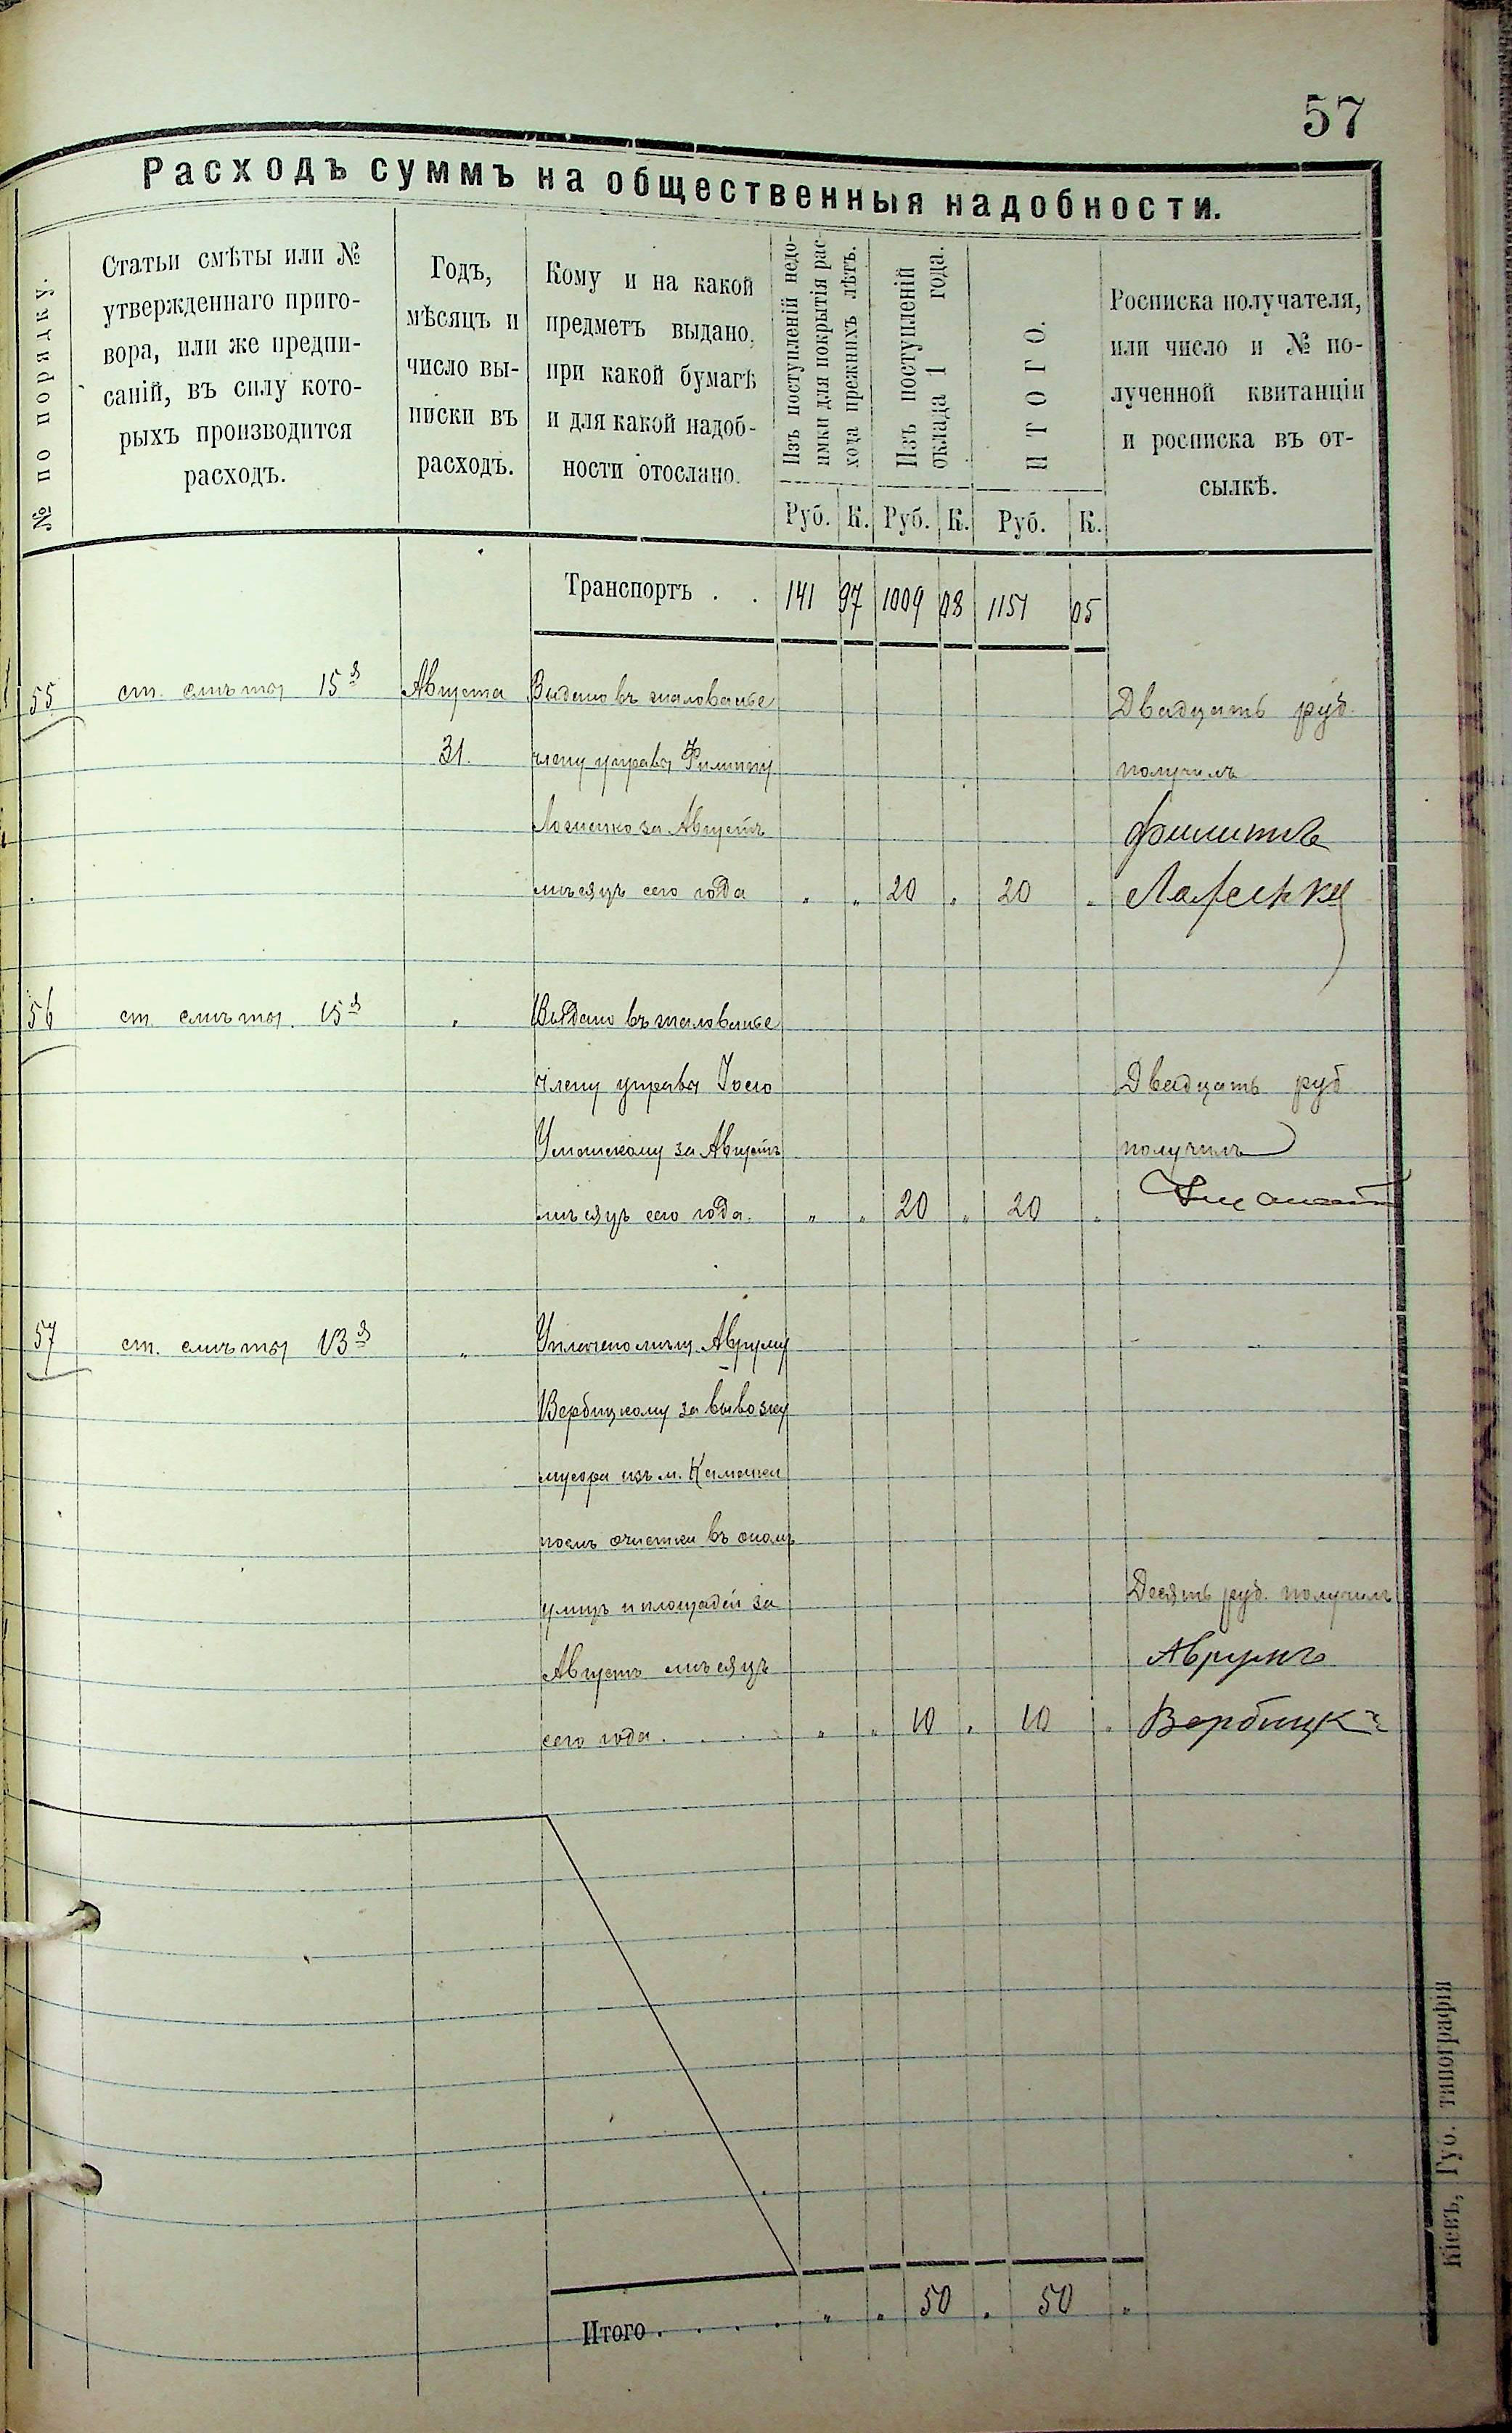 57
Расходъ суммъ на общественныя надобности.
№ по порядку.
Статьи смѣты или №
утвержденнаго приго-
вора, или же предпи-
саній, въ силу кото-
рыхъ производится
расходъ.
Годъ,
мѣсяцъ и
число вы-
писки въ
расходъ.
Кому и на какой
предметъ выдано,
при какой бумагѣ
и для какой надоб-
ности отослано.
Изъ поступленій недо-
имки для покрытія рас-
хода прежнихъ лѣтъ.
Изъ поступленій
оклада 1 года.
ИТОГО.
Росписка получателя,
или число и № по-
лученной квитанціи
и росписка въ от-
сылкѣ.
Руб. К. Руб. К. Руб. К.
Транспортъ . . 141 97 1009 08 1151 05
55 ст. смѣты 15я Августа Выдано въ жалованье
31. члену управы Филиппу
за Августъ
мѣсяцъ сего года " " 20 " 20 "
Двадцать руб.
получилъ
Филиппъ
56 ст. смѣты 15я " Выдано въ жалованье
члену управы
Уманскому за Августъ
мѣсяцъ сего года. " " 20 " 20 "
Двадцать руб
получилъ
57 ст. смѣты 13я " Уплачено Авруму
Вербицкому за вывозку
мусора изъ м. Каменки
послѣ очистки въ ономъ
улицъ и площадей за
Августъ мѣсяцъ
сего года . . . . " " 10 " 10 "
Десять руб. получилъ
Аврумъ
Вербицкій
Итого . . . . . " " 50 " 50 "
Кіевъ, Губ. типографія